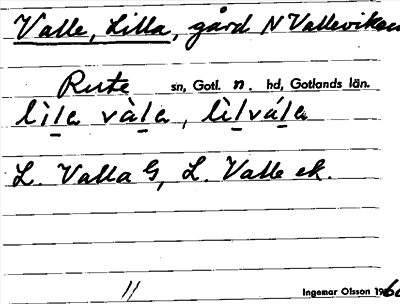 Valle, Lilla, gård N Valleviken
Rute sn, Gotl. n. hd, Gotlands län.
lìla vàla, lìlvála
L. Valla G, L. Valle ek.
11
Ingemar Olsson 1960